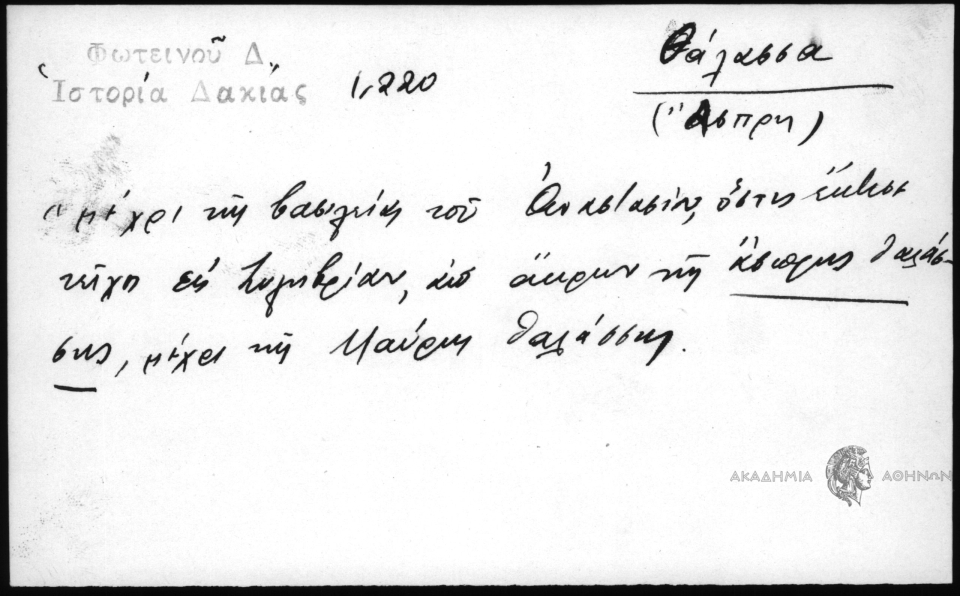 Φωτεινοῦ Δ.
Ἱστορία Δακίας 1,220
Θάλασσα
(Ἄσπρη)
"μέχρι τῆς βασιλείας τοῦ Ἀναστασίου, ὅστις ἔκτισε
τείχη εἰς Συλυβρίαν, ἀπὸ ἄκρων τῆς ἄσπρης θαλάσ-
σης, μέχρι τῆς Μαύρης θαλάσσης.
ΑΚΑΔΗΜΙΑ ΑΘΗΝΩΝ